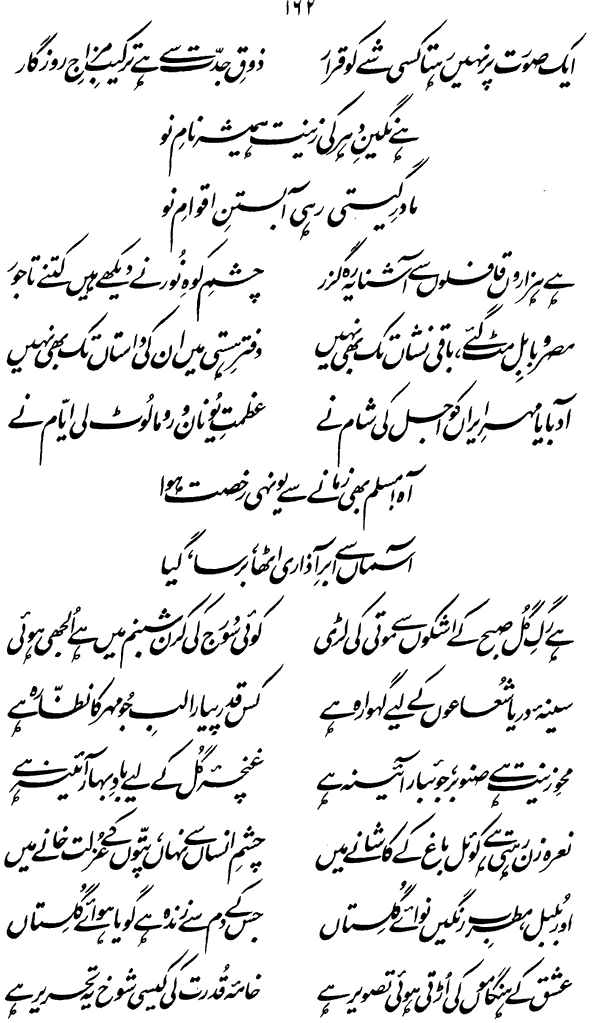 ۱۶۲
ایک صورت پر نہیں رہتا کسی شے کو قرار ذوقِ جدّت سے ہے ترکیبِ مزاجِ روزگار
ہے نگینِ دہر کی زینت ہمیشہ نامِ نو
مادرِ گیتی رہی آبستنِ اقوامِ نو
ہے ہزاروں قافلوں سے آشنا یہ رہ گزر چشمِ کوہِ نُور نے دیکھے ہیں کتنے تاجور
مصر و بابل مٹ گئے، باقی نشاں تک بھی نہیں دفترِ ہستی میں ان کی داستاں تک بھی نہیں
آ دبایا مہرِ ایراں کو اجل کی شام نے عظمتِ یُونان و روما لُوٹ لی ایّام نے
آہ! مسلم بھی زمانے سے یونہی رخصت ہوا
آسماں سے ابرِ آذاری اٹھا، برسا، گیا
ہے رگِ گُل صبح کے اشکوں سے موتی کی لڑی کوئی سُورج کی کرن شبنم میں ہے اُلجھی ہوئی
سینۂ دریا شُعاعوں کے لیے گہوارہ ہے کس قدر پیارا لبِ جُو مہر کا نظّارہ ہے
محوِ زینت ہے صنوبر، جوئبار آئینہ ہے غنچۂ گُل کے لیے بادِ بہار آئینہ ہے
نعرہ زن رہتی ہے کوئل باغ کے کاشانے میں چشمِ انساں سے نہاں، پتّوں کے عُزلت خانے میں
اور بُلبل، مطربِ رنگیں نوائے گُلستاں جس کے دم سے زندہ ہے گویا ہوائے گُلستاں
عشق کے ہنگاموں کی اُڑتی ہوئی تصویر ہے خامۂ قُدرت کی کیسی شوخ یہ تحریر ہے